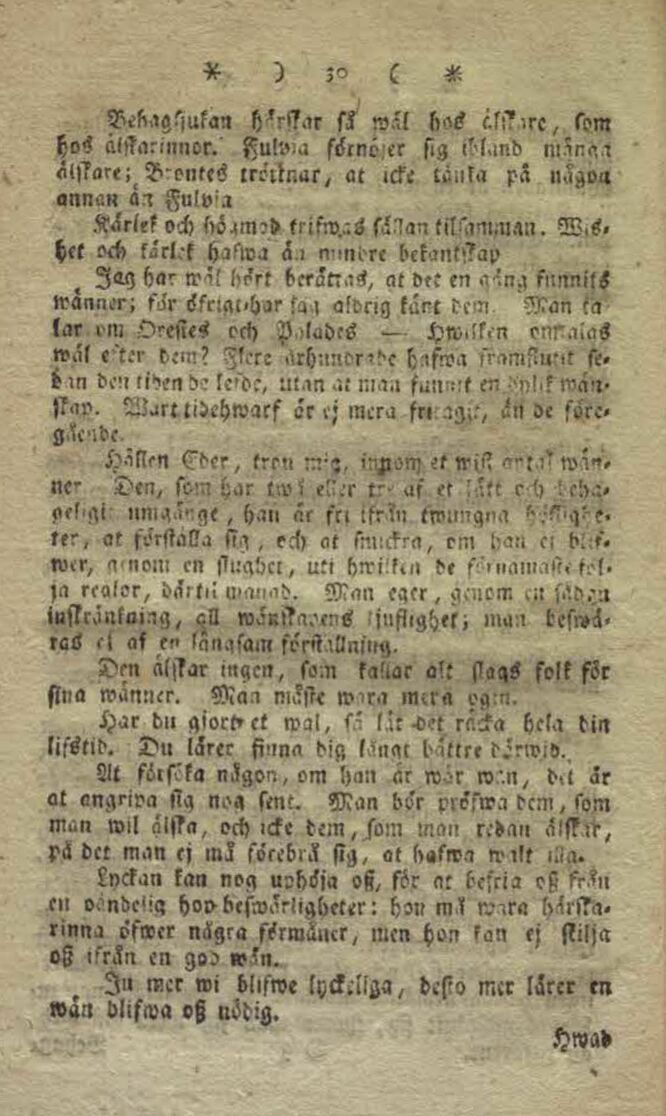 * ) 30 ( *
Behagsjukan härskar så wäl hos älskare, som
hos älskarinnor. Fulvia förnöjer sig ibland många
älskare; Brontes tröttnar, at icke tänka på någon
annan än Fulvia
Kärlek och högmod trifwas sällan tilsamman. Wis-
het och kärlek hafwa än mindre bekantskap
Jag har wäl hört berättas, at det en gång funnits
wänner; för öfrigt har jag aldrig känt dem. Man ta
lar om Orestes och Palades — Hwilken omtalas
wäl efter dem? Flere århundrade hafwa framflutit se-
dan den tiden de lefde, utan at man funnit en dylik wän-
skap. Wart tidehwarf är ej mera fritagit, än de före-
gående.
Hållen Eder, tron mig, innom et wist antal wän-
ner. Den, som har twå eller tre af et lätt och beha-
geligit umgänge, han är fri ifrån twungna höflighe-
ter, at förställa sig, och at smickra, om han ej blif-
wer, genom en slughet, uti hwilken de förnamaste föl-
ja reglor, därtil manad. Man eger, genom en sådan
inskränkning, all wänskapens ljuflighet; man beswä-
ras ej af en långsam förställning.
Den älskar ingen, som kallar alt slags folk för
sina wänner. Man måste wara mera ogin.
Har du gjort et wal, så låt det räcka hela din
lifstid. Du lärer finna dig långt bättre därwid.
At försöka någon, om han är wår wän, det är
at angripa sig nog sent. Man bör pröfwa dem, som
man wil älska, och icke dem, som man redan älskar,
på det man ej må förebrå sig, at hafwa walt illa.
Lyckan kan nog uphöja oß, för at befria oß från
en oändelig hop beswärligheter: hon må wara härska-
rinna öfwer några förmåner, men hon kan ej skilja
oß ifrån en god wän.
Ju mer wi blifwe lyckeliga, desto mer lärer en
wän blifwa oß nödig.
Hwad